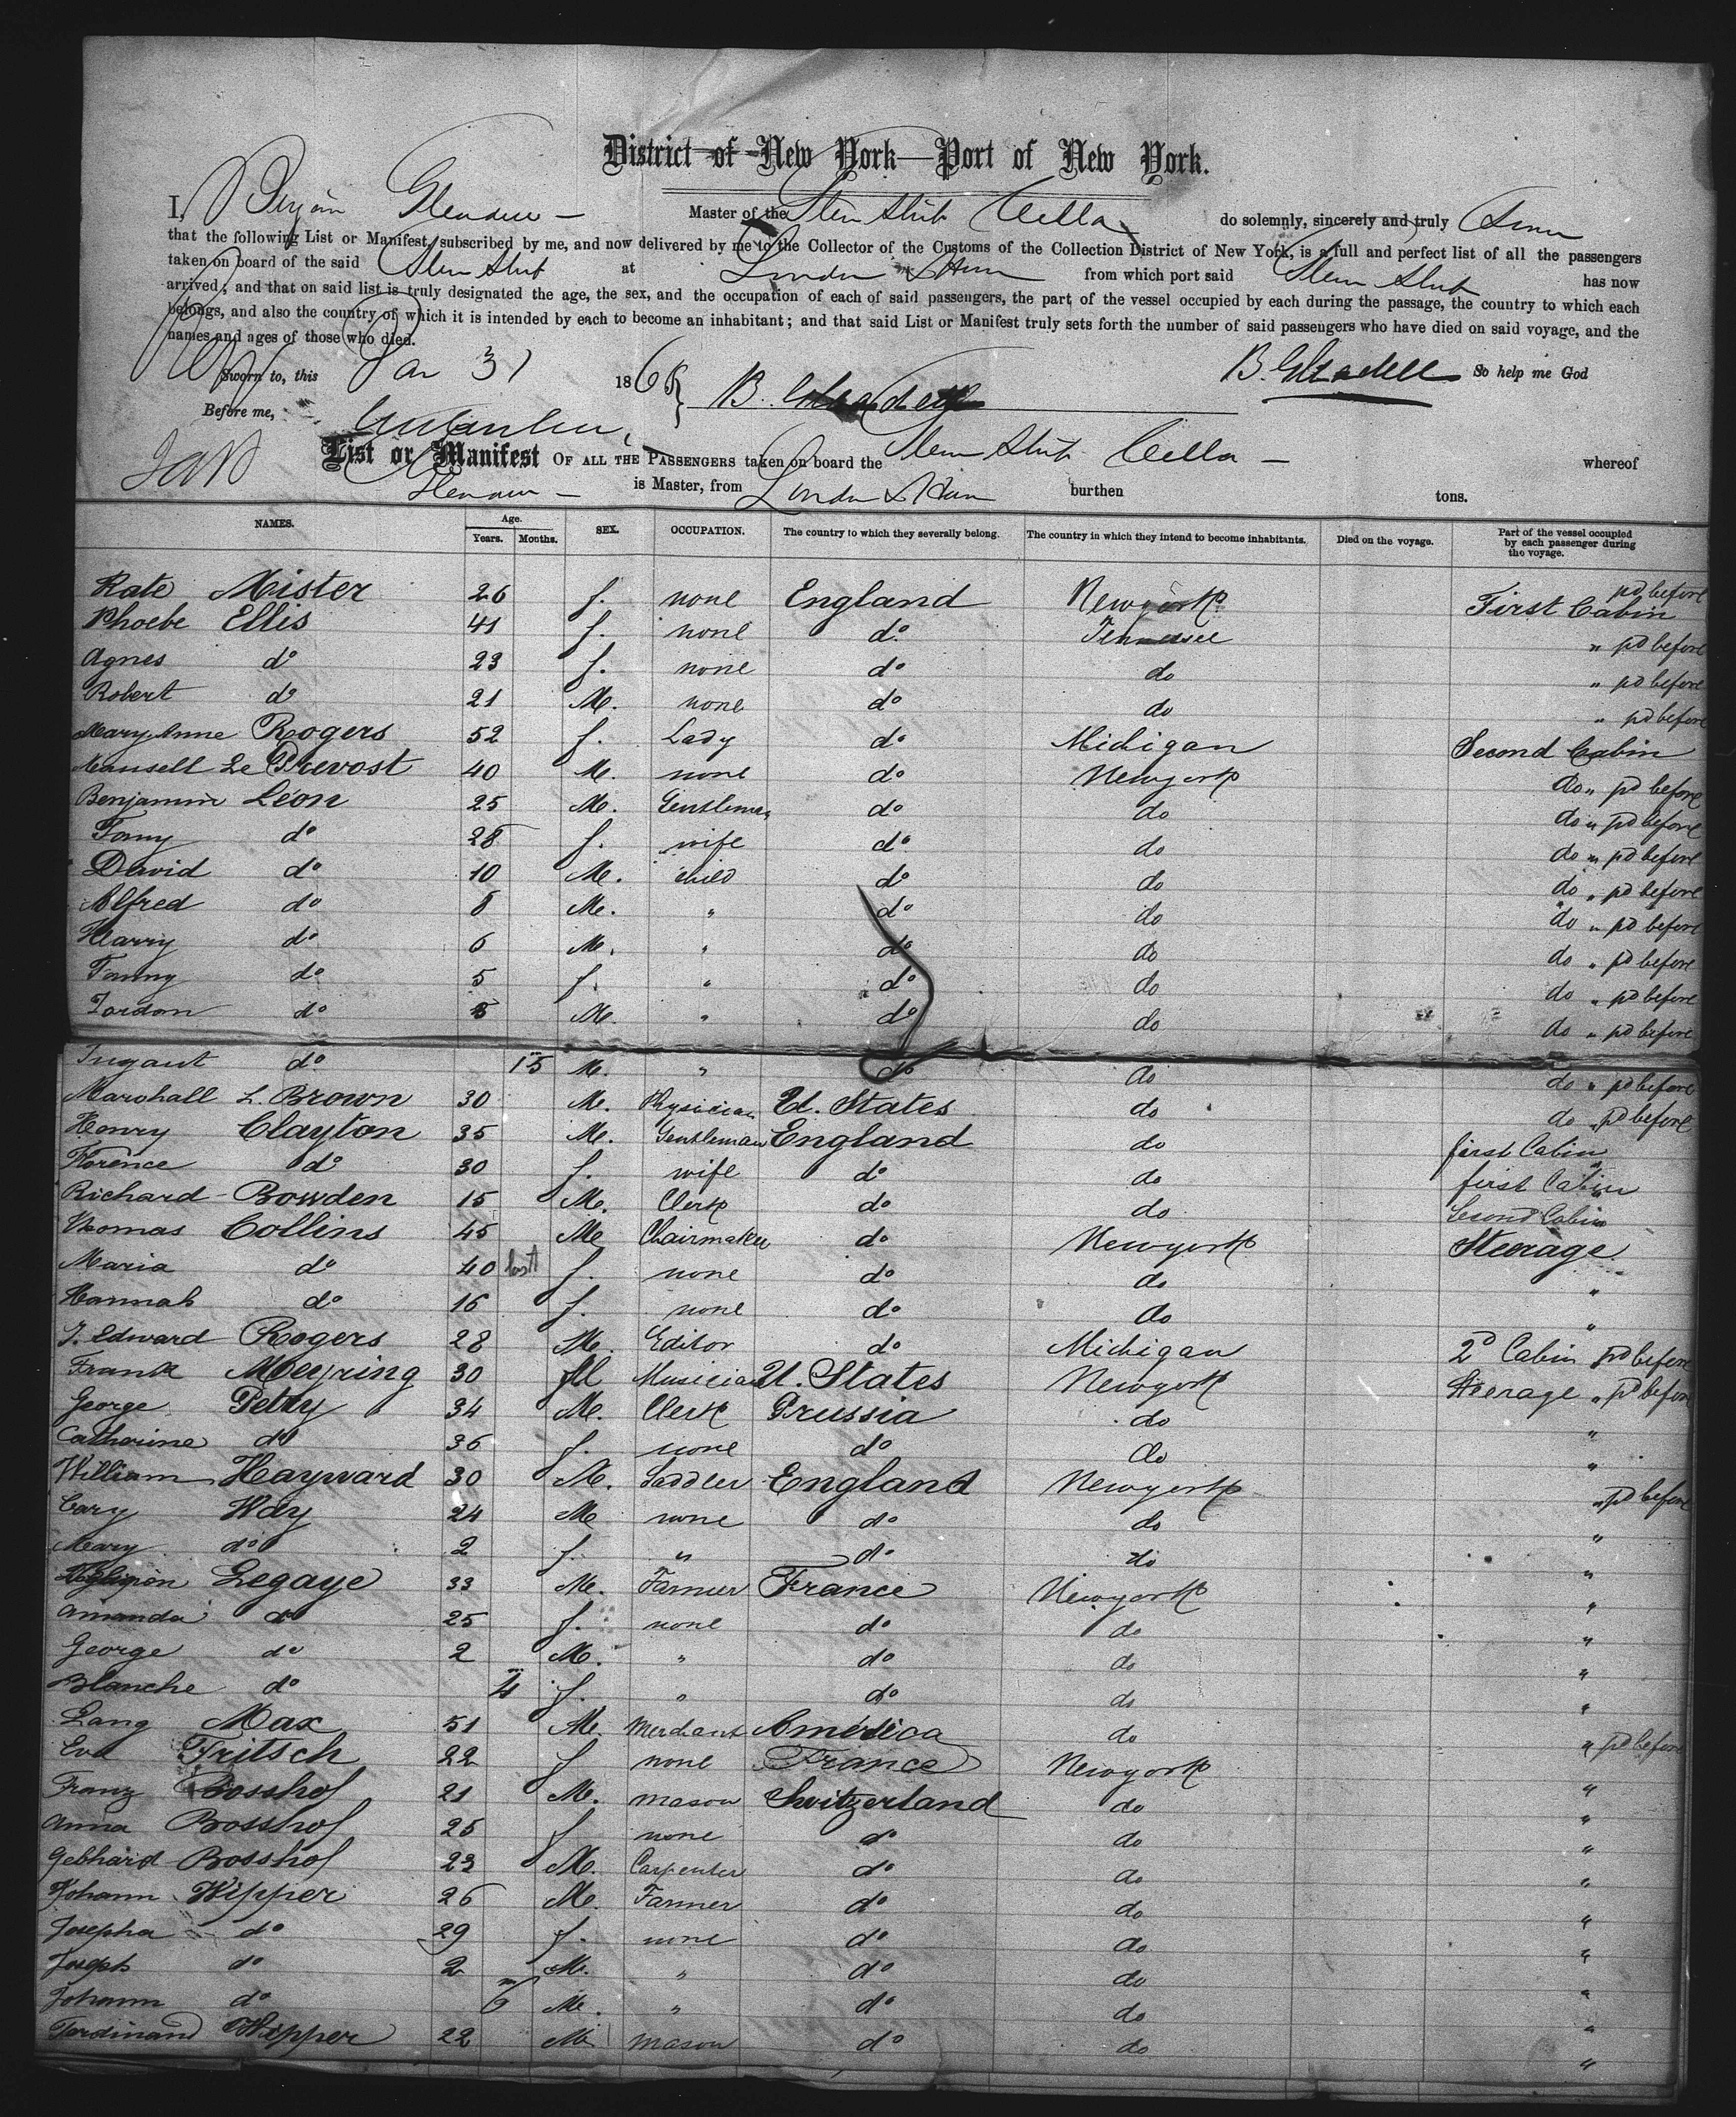 District of New York—Port of New York.
I, Benjn Gleadell — Master of the Steam Ship Cella do solemnly, sincerely and truly Swear
that the following List or Manifest, subscribed by me, and now delivered by me to the Collector of the Customs of the Collection District of New York, is a full and perfect list of all the passengers
taken on board of the said Steam Ship at London & Havre from which port said Steam Ship has now
arrived; and that on said list is truly designated the age, the sex, and the occupation of each of said passengers, the part of the vessel occupied by each during the passage, the country to which each
belongs, and also the country of which it is intended by each to become an inhabitant; and that said List or Manifest truly sets forth the number of said passengers who have died on said voyage, and the
names and ages of those who died.
B. Gleadell So help me God
Sworn to, this Jan 31 1868 } B. Gleadell
Before me,
List or Manifest OF ALL THE PASSENGERS taken on board the Steam Ship Cella — whereof
is Master, from London & Havre burthen tons.
NAMES. Age. Years. Months. SEX. OCCUPATION. The country to which they severally belong. The country in which they intend to become inhabitants. Died on the voyage. Part of the vessel occupied by each passenger during the voyage.
Kate Mister 26 f. none England Newyork First Cabin pd before
Phoebe Ellis 41 f. none do Tennessee " pd before
Agnes do 23 f. none do do " pd before
Robert do 21 M. none do do " pd before
Mary Anne Rogers 52 f. Lady do Michigan Second Cabin
Mansell Le Prevost 40 M. none do Newyork do " pd before
Benjamin Léon 25 M. Gentleman do do do " pd before
Fanny do 28 f. wife do do do " pd before
David do 10 M. child do do do " pd before
Alfred do 8 M. " do do do " pd before
Harry do 6 M. " do do do " pd before
Fanny do 5 f. " do do do " pd before
do M. " do do do " pd before
do 15 M. " do do do " pd before
Marshall L. Brown 30 M. Physician U. States do do " pd before
Henry Clayton 35 M. Gentleman England do first Cabin
Florence do 30 f. wife do do first Cabin
Richard Bowden 15 M. Clerk do do Second Cabin
Thomas Collins 45 M. Chairmaker do Newyork Steerage
Maria do 40 f. none do do "
Hannah do 16 f. none do do "
J. Edward Rogers 28 M. Editor do Michigan 2d Cabin pd before
Frank Meyring 30 M Musician U. States Newyork Steerage " pd before
George Petry 34 M. Clerk Prussia do "
Catherine do 36 f. none do do "
William Hayward 30 M. Saddler England Newyork " pd before
Cary Way 24 M none do do "
Mary do 2 f. " do do "
Legaye 33 M. Farmer France Newyork "
Amanda do 25 f. none do do "
George do 2 M. " do do "
Blanche do 4 f. " do do "
Lang Max 51 M. Merchant America do " pd before
Eva Fritsch 22 f none France Newyork "
Franz Bosshof 21 M. mason Switzerland do "
Anna Bosshof 25 f none do do "
Gebhard Bosshof 23 M. Carpenter do do "
Johann Wipper 26 M. Farmer do do "
Josepha do 29 f. none do do "
Joseph do 2 M. " do do "
Johann do 6 M. " do do "
Ferdinand Wipper 22 M mason do do "